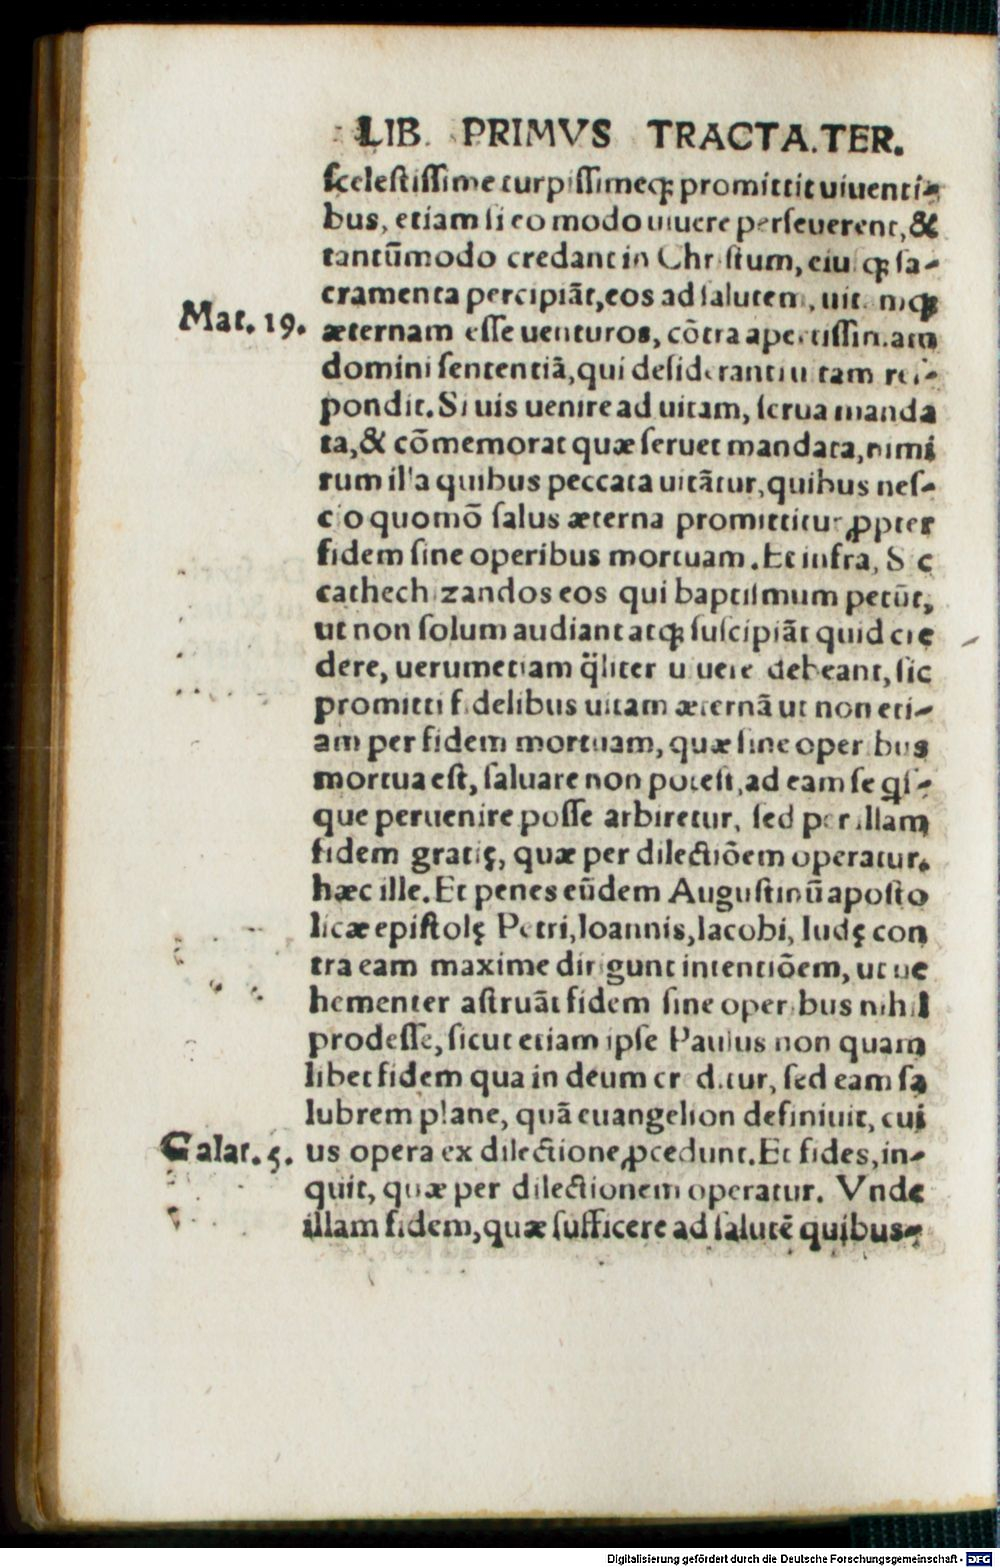 LIB. PRIMVS TRACTA.TER.
sceleſtiſſime turpiſſimeq; promittit uiuenti-
bus, etiam ſi eo modo uiuere perſeuerent, &
tantūmodo credant in Chriſtum, eiuſq; ſa-
cramenta percipiāt, eos ad ſalutem, uitamq;
Mat. 19.
æternam eſſe uenturos, cōtra apertiſſimam
domini ſententiā, qui deſideranti uitam reſ-
pondit. Si uis uenire ad uitam, ſerua manda
ta, & cōmemorat quæ ſeruet mandata, nimi
rum illa quibus peccata uitātur, quibus neſ-
cio quomō ſalus æterna promittitur ꝓpter
fidem ſine operibus mortuam. Et infra, Sic
cathechizandos eos qui baptiſmum petūt,
ut non ſolum audiant atq; ſuſcipiāt quid cre
dere, uerumetiam q̈liter uiuere debeant, ſic
promitti fidelibus uitam æternā ut non eti-
am per fidem mortuam, quæ ſine operibus
mortua eſt, ſaluare non poteſt, ad eam ſe qſ-
que peruenire poſſe arbiretur, ſed per illam
fidem gratię, quæ per dilectiōem operatur.
hæc ille. Et penes eūdem Auguſtinū apoſto
licæ epiſtolę Petri, Ioannis, Iacobi, Iudę con
tra eam maxime dirigunt intentiōem, ut ue
hementer aſtruāt fidem ſine operibus nihil
prodeſſe, ſicut etiam ipſe Paulus non quam
libet fidem qua in deum creditur, ſed eam ſa
lubrem plane, quā euangelion definiuit, cui
Galat. 5.
us opera ex dilectione ꝓcedunt. Et fides, in-
quit, quæ per dilectionem operatur. Vnde
illam fidem, quæ ſufficere ad ſalutē quibus-
Digitalisierung gefördert durch die Deutsche Forschungsgemeinschaft - DFG